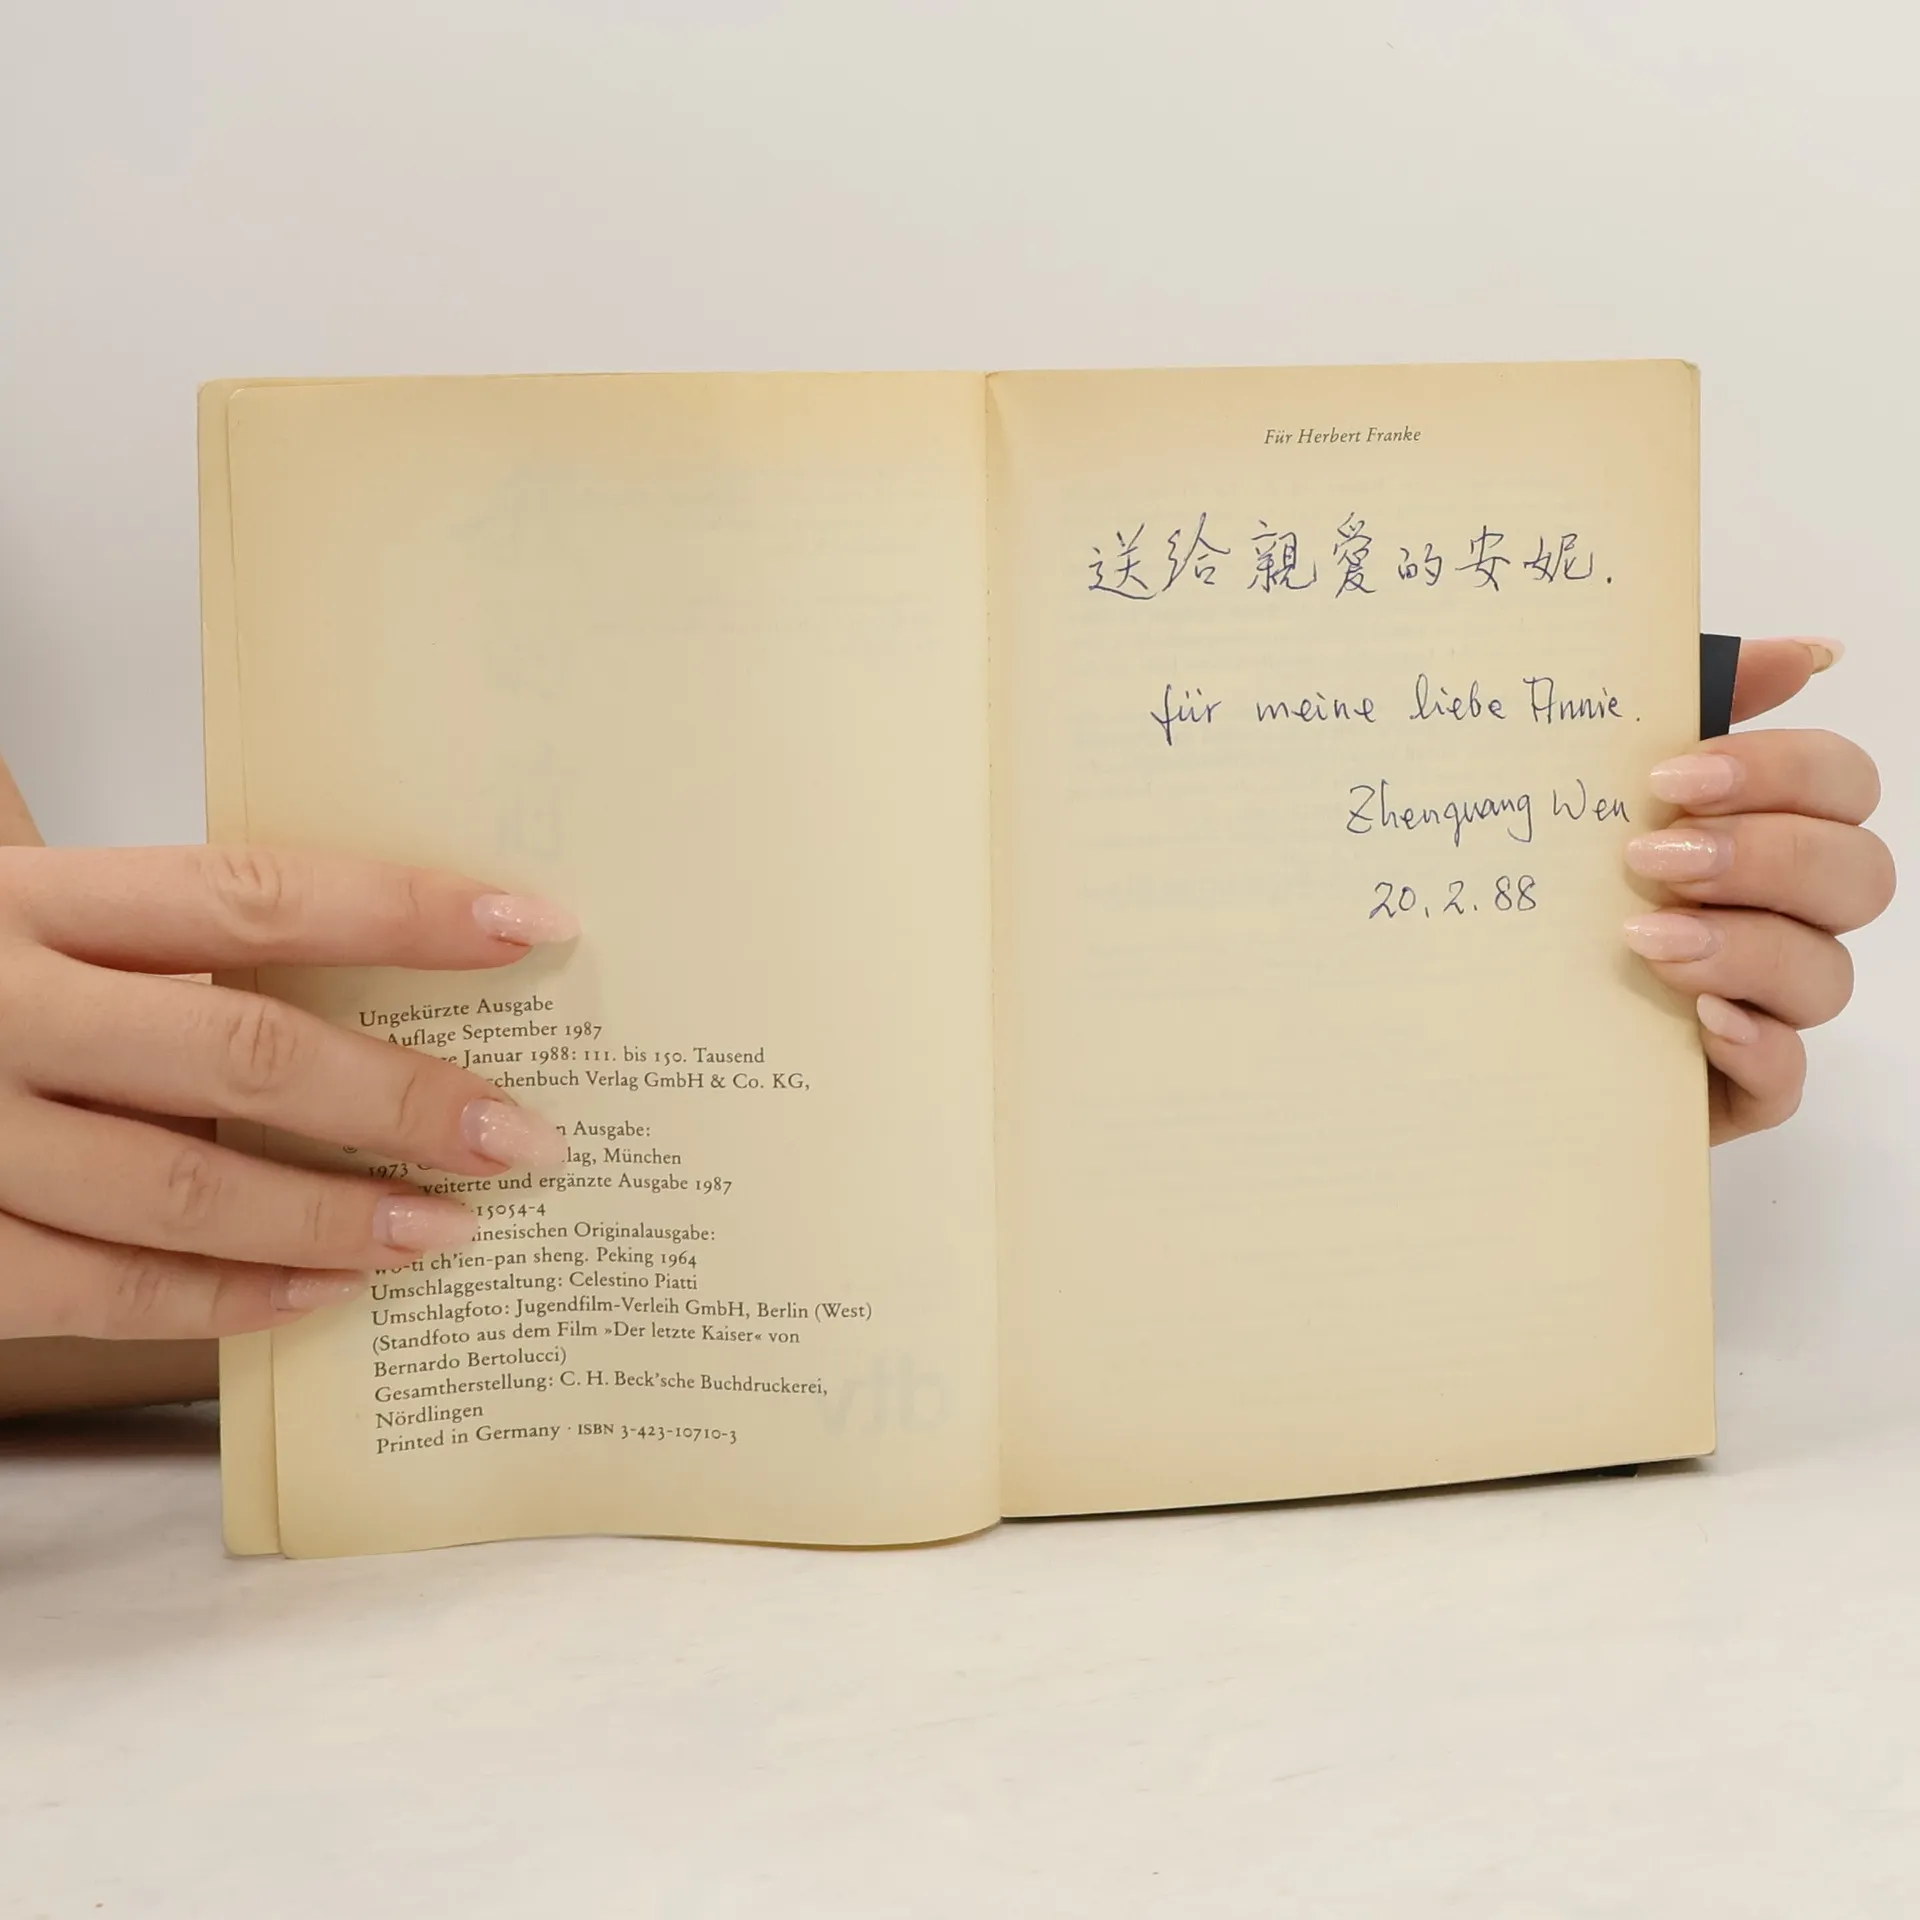 Ungekürzte Ausgabe
Auflage September 1987
Januar 1988: 111. bis 150. Tausend
Verlag GmbH & Co. KG,
Ausgabe:
1973 München
und ergänzte Ausgabe 1987
15054-4
Originalausgabe:
ch'ien-pan sheng. Peking 1964
Umschlaggestaltung: Celestino Piatti
Umschlagfoto: Jugendfilm-Verleih GmbH, Berlin (West)
(Standfoto aus dem Film »Der letzte Kaiser« von
Bernardo Bertolucci)
Gesamtherstellung: C. H. Beck'sche Buchdruckerei,
Nördlingen
Printed in Germany · ISBN 3-423-10710-3
Für Herbert Franke
送给親愛的安妮.
für meine liebe Annie.
Zhenguang Wen
20. 2. 88